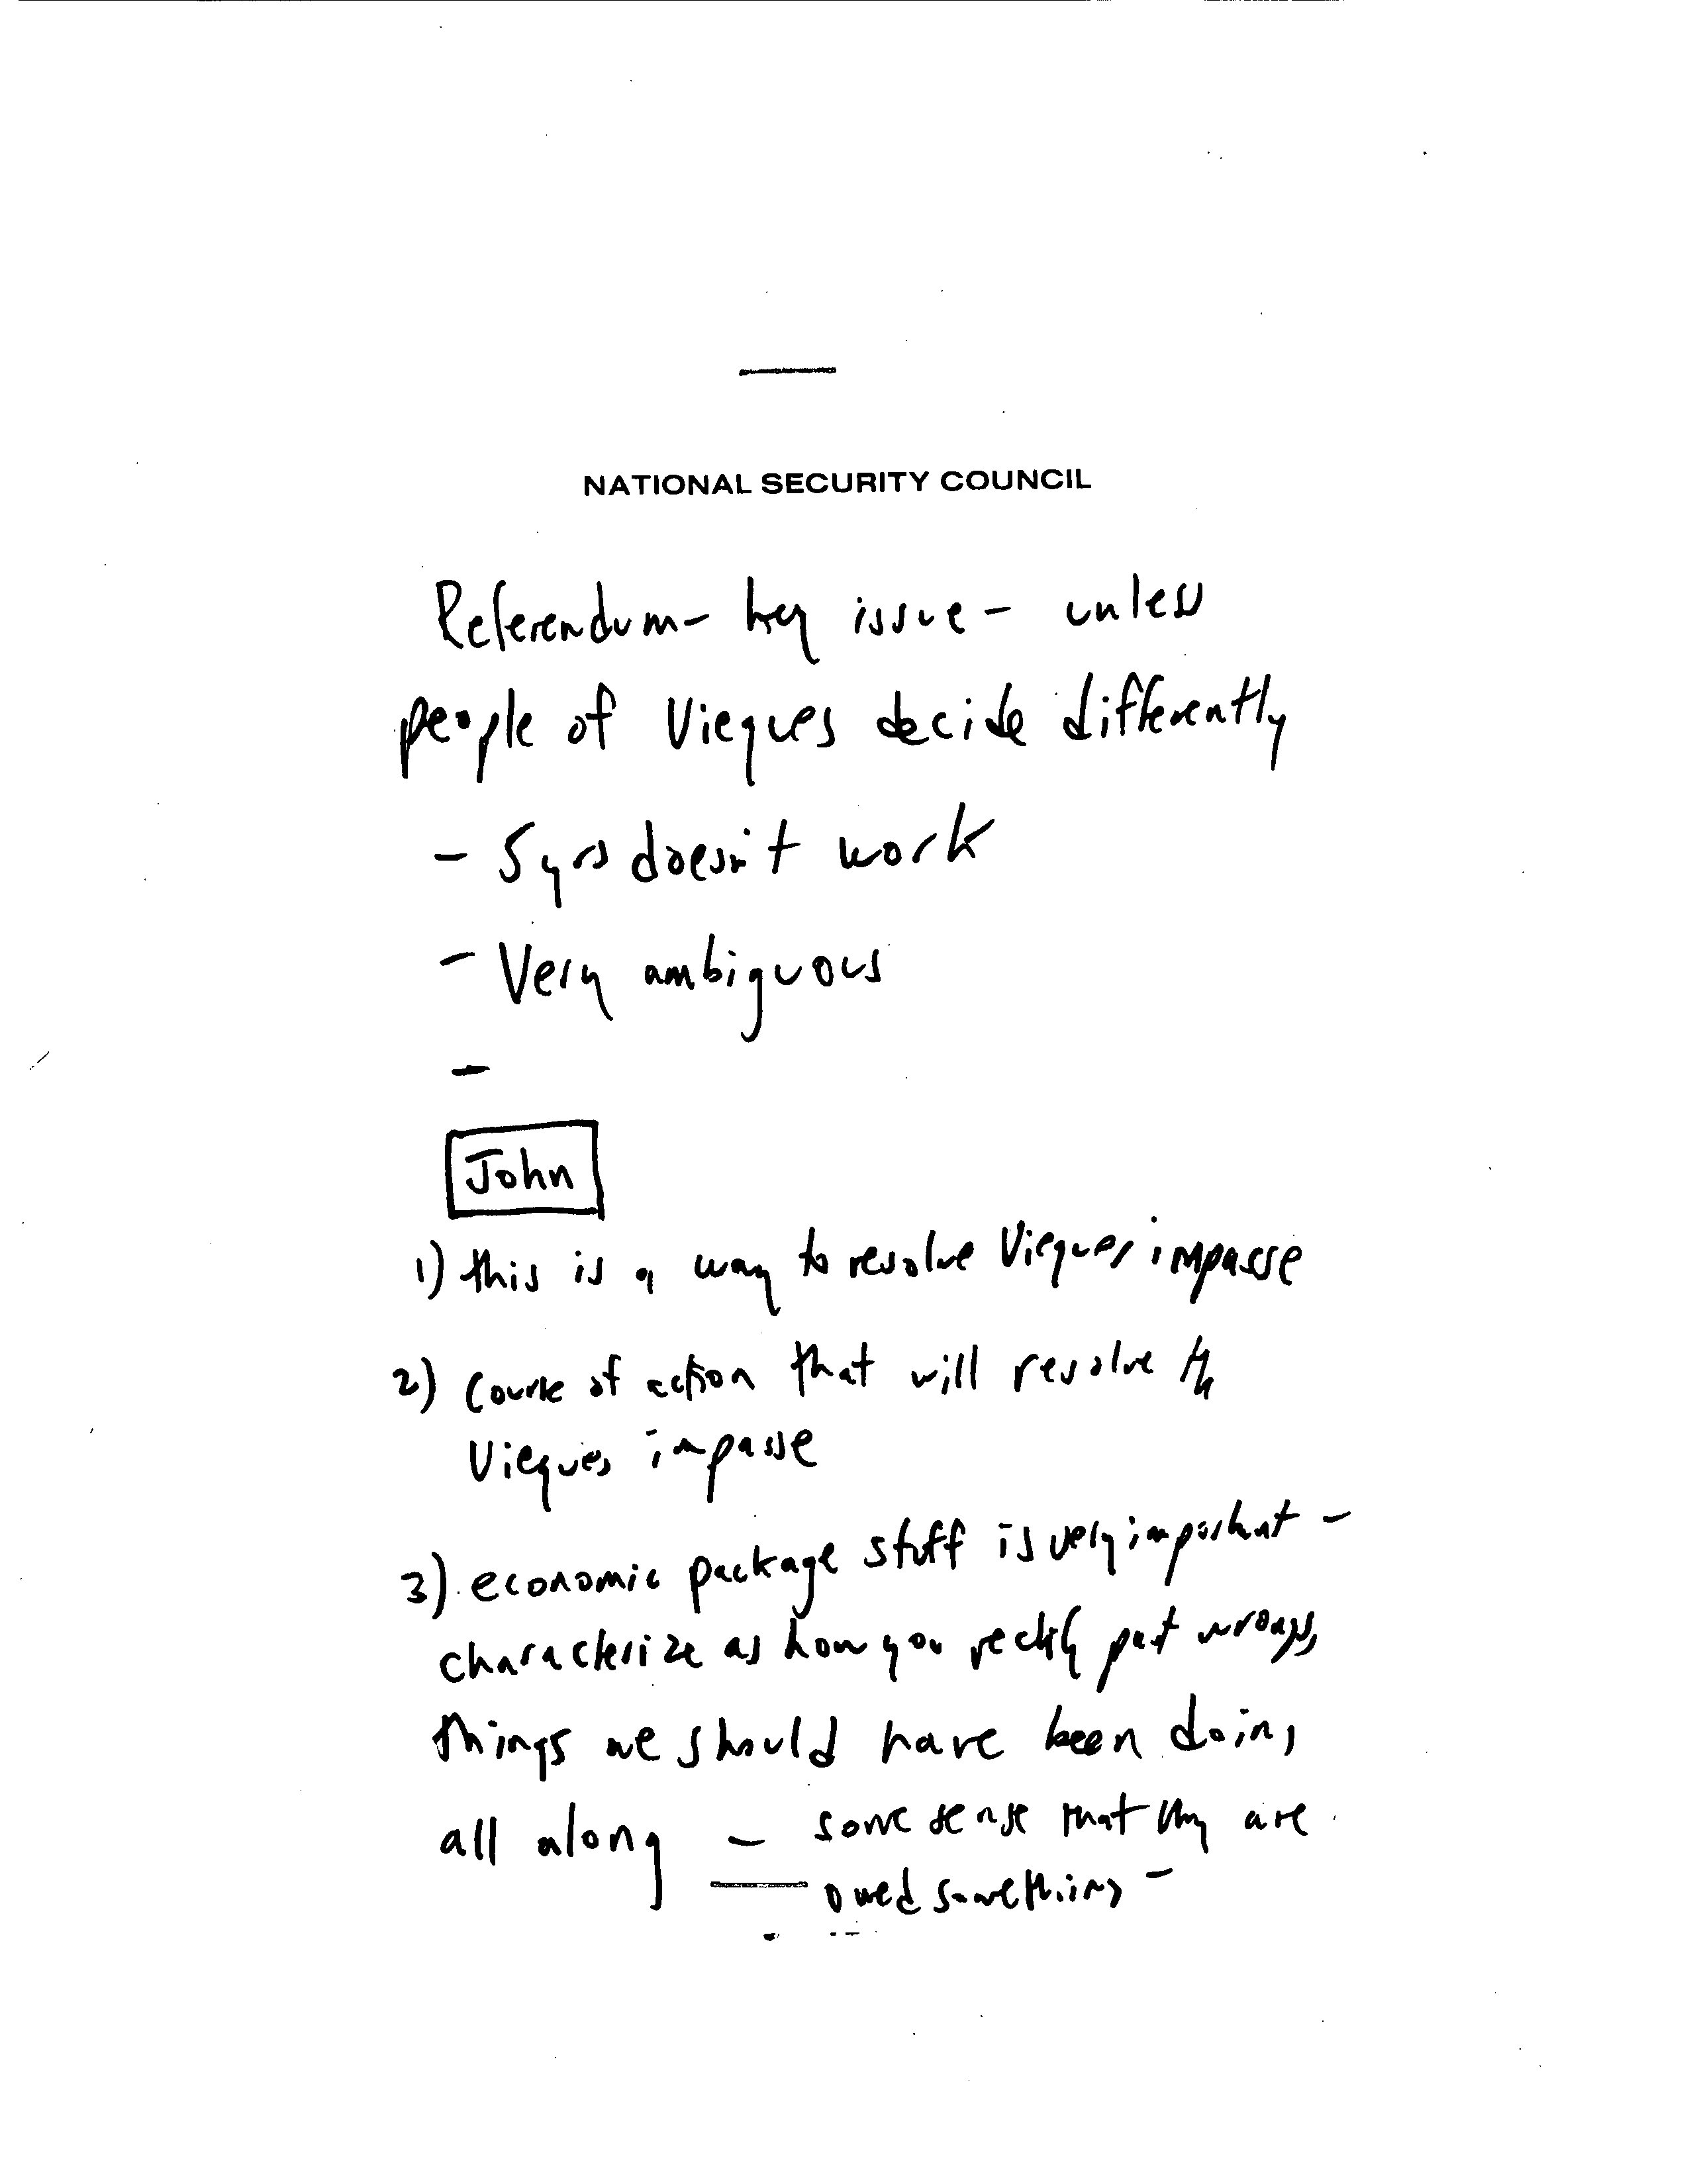 NATIONAL SECURITY COUNCIL
Referendum - key issue - unless
people of Vieques decide differently
- 5 yrs doesn't work
- Very ambiguous
-
John
1) this is a way to resolve Vieques impasse
2) Course of action that will resolve the
Vieques impasse
3) economic package stuff is very important -
characterize as how you rectify past wrongs,
things we should have been doing
all along - some sense that they are
owed something -